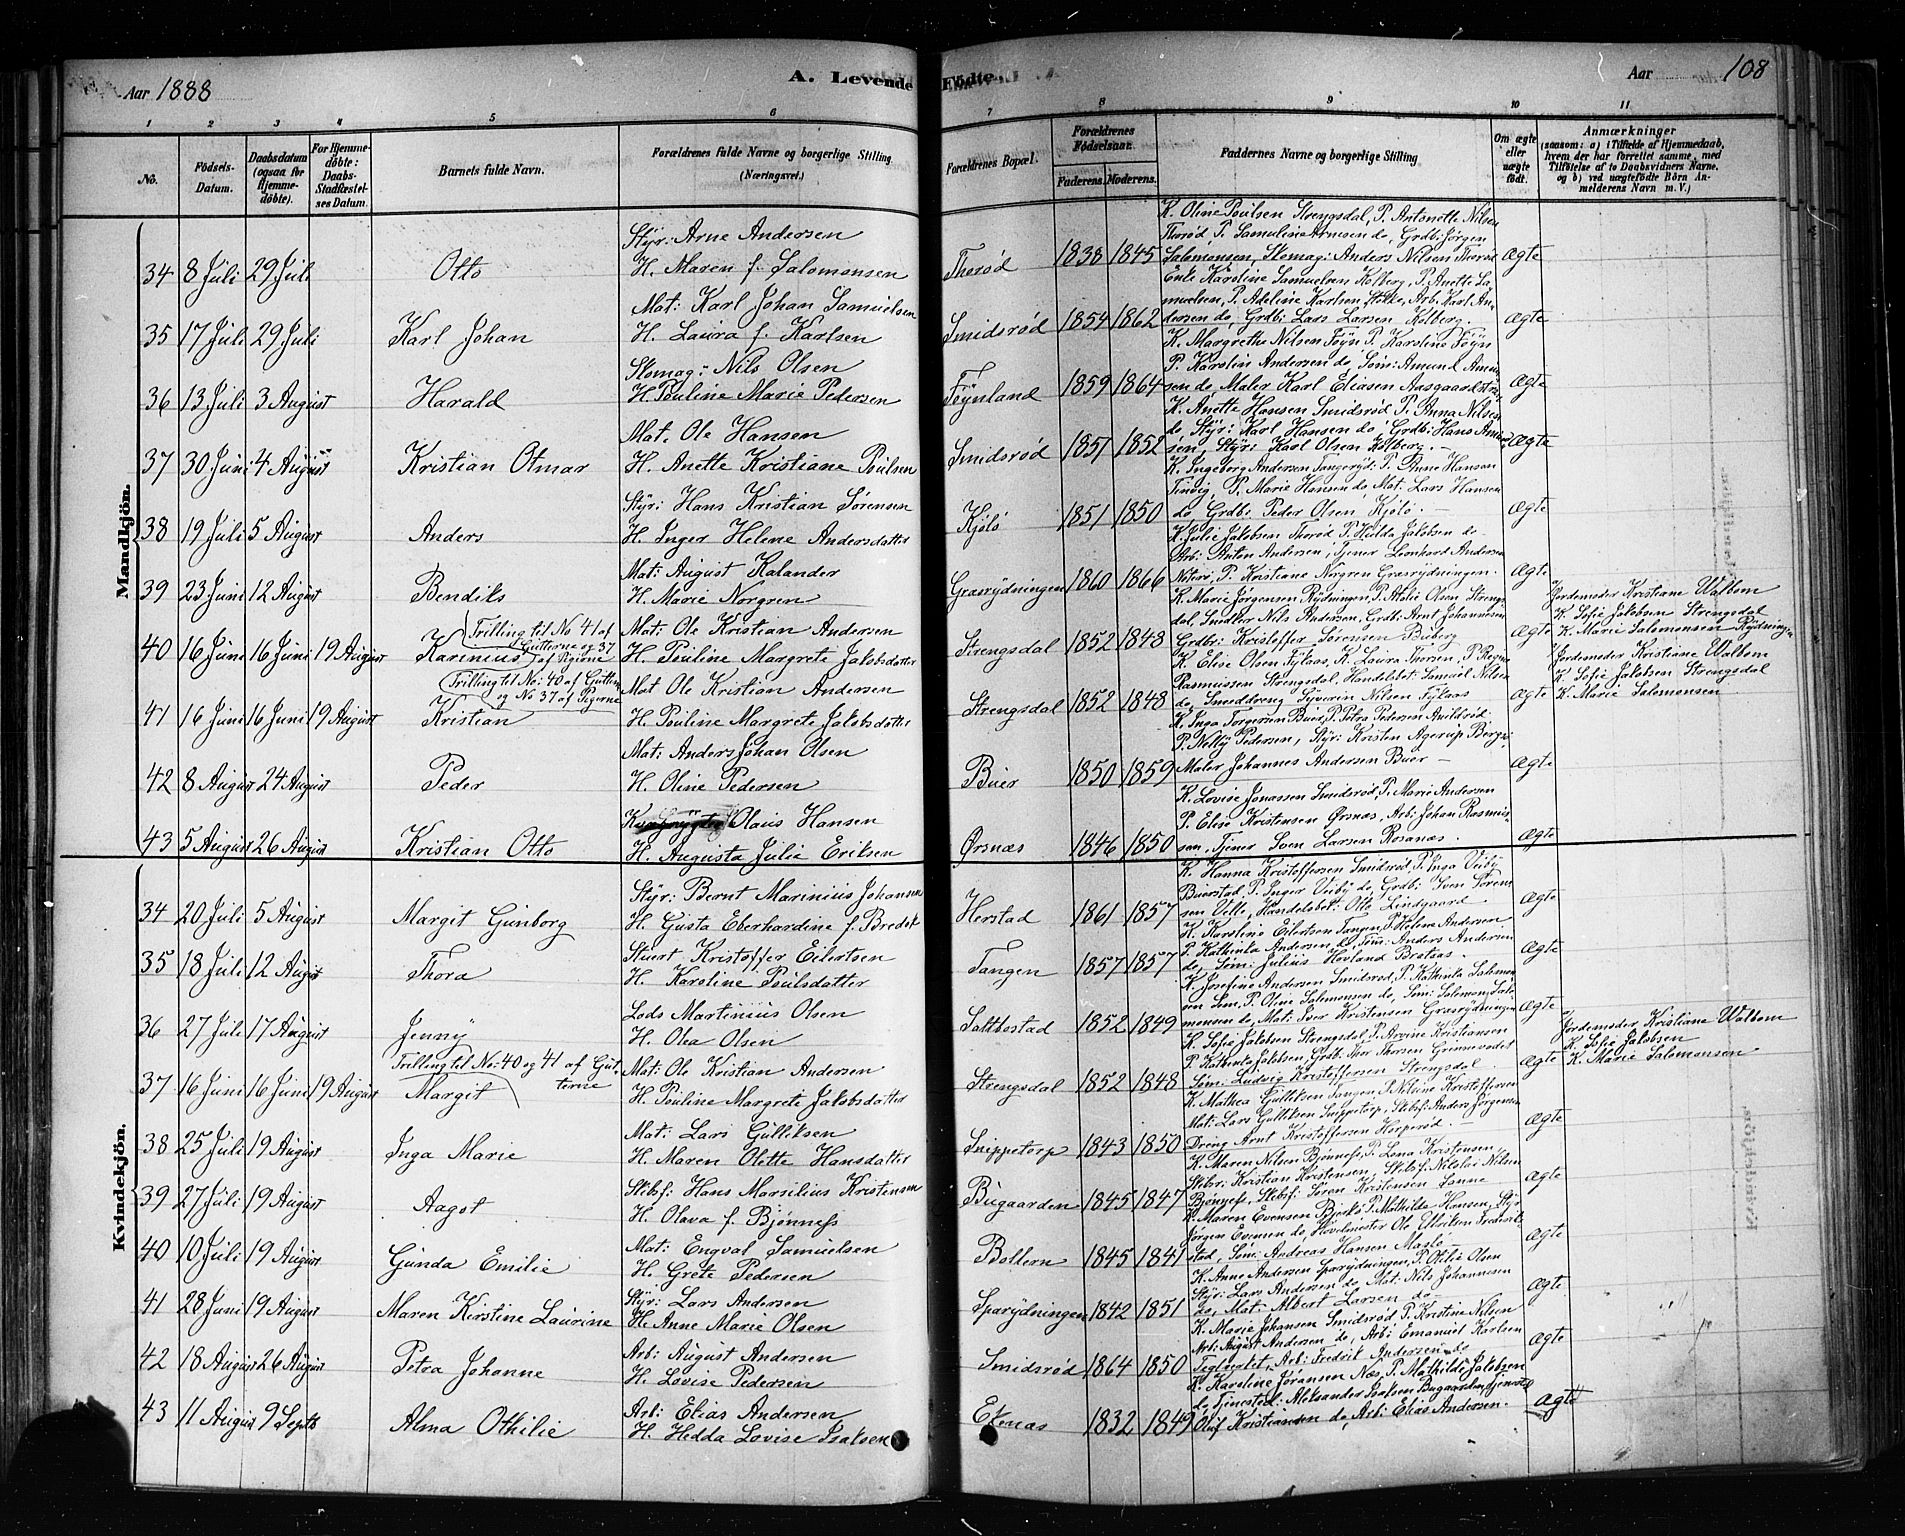 Aar 1888
A. Levende Fødte.
Aar 108
1 2 3 4 5 6 7 8 9 10 11
No.
Fødsels-Datum.
Daabsdatum (ogsaa for Hjemmedöbte).
For Hjemmedöbte: Daabs-Stadfæstelses Datum.
Barnets fulde Navn.
Forældrenes fulde Navne og borgerlige Stilling. (Næringsvei.)
Forældrenes Bopæl.
Forældrenes Födselsaar.
Faderens. Moderens.
Faddernes Navne og borgerlige Stilling
Om ægte eller uægte født.
Anmærkninger (saasom: a) i Tilfælde af Hjemmedaab, hvem der har forrettet samme, med Tilföielse af to Daabsvidners Navne, og b) ved uægtefödte Börn Anmelderens Navn m. V.)
Mandkjön.
34 8 Juli 29 Juli Otto
Styr: Arne Andersen
H. Maren f. Salomonsen
Thorød 1838 1845
K. Oline Poulsen Strengsdal, P. Antonette Nilsen
Thorød, P. Samuline Arnesen do, Grdb: Jørgen
Salomonsen, Skomag: Anders Nilsen Thorød
Ægte
35 17 Juli 29 Juli Karl Johan
Mat: Karl Johan Samuelsen
H. Laura f. Karlsen
Smidsrød 1854 1862
Enke Karoline Samuelsen Kolberg, P. Anette Sa-
muelsen, P. Adeline Karlsen, Arb. Karl An-
dersen do, Grdb: Lars Larsen Kolberg
Ægte
36 13 Juli 3 August Harald
Skomag: Nils Olsen
H. Pouline Marie Pedersen
Føynland 1859 1864
K. Margrethe Nilsen Føyn P. Karoline Føyn
P. Karoline Andersen do, Søm: Amund Amun-
sen do, Maler Karl Eliasen Aasgaardstran
Ægte
37 30 Juni 4 August Kristian Otmar
Mat. Ole Hansen
H. Anette Kristiane Poulsen
Smidsrød 1851 1852
K. Anette Hansen Smidsrød P. Anna Nilsen
do Styr: Karl Hansen do Grdb: Hans Amund-
sen, Styr: Karl Olsen Kolberg.
Ægte
38 19 Juli 5 August Anders
Styr: Hans Kristian Sørensen
H. Inger Helene Andersdatter
Kjølø 1851 1850
K. Ingeborg Andersen Tangerød, P. Anne Hansen
Tinvig, P. Marie Hansen do, Mat: Lars Hansen
do Grdb: Peder Olsen Kjølø.
Ægte
39 23 Juni 12 August Bendiks
Mat: August Kalander
H. Marie Norgren
Grasrydningen 1860 1866
K. Julie Jakobsen Thorød P. Hulda Jakobsen do
Arb: Anton Andersen, Tjener Leonhard Andersen
Nøterø, P. Kristiane Norgren Grasrydningen.
Ægte
40 16 Juni 16 Juni 19 August Karinius
(Trilling til No 41 af Gutterne og 37 af Pigerne
Mat: Ole Kristian Andersen
H. Pouline Margrete Jakobsdatter
Strengsdal 1852 1848
K. Marie Jørgensen Rydningen, P. Atalie Olsen Strengs-
dal, Snedker Nils Andersen, Grdb: Arnt Johannesen
Grdbr: Kristoffer Sørensen Buberg
Ægte
Jordemoder Kristiane Walbom
K. Sofie Jakobsen Strengsdal
K. Marie Salomonsen Rydningen
41 16 Juni 16 Juni 19 August Kristian
(Trilling til No: 40 af Gutterne og No 37 af Pigerne
Mat Ole Kristian Andersen
H. Pouline Margrete Jakobsdatter
Strengsdal 1852 1848
K. Elise Olsen Fylaas, K. Laura Thorsen, P. Regine
Rasmussen Strengsdal, Handelsbet: Samuel Nilsen
do, Smeddreng Syverin Nilsen Fylaas
Ægte
Jordemoder Kristiane Walbom
K. Sofie Jakobsen Strengsdal
K. Marie Salomonsen
42 8 August 24 August Peder
Mat: Anders Johan Olsen
H. Oline Pedersen
Buer 1850 1859
K. Inga Torgersen Buer, P. Petra Pedersen
P. Nelly Pedersen, Styr: Kristen Agerup Bergs
Maler Johannes Andersen Buer
Ægte
43 5 August 26 August Kristian Otto
Olaus Hansen
H. Augusta Julie Eriksen
Ørsnæs 1846 1850
K. Lovise Jonassen Smidsrød, P. Marie Andersen
P. Elise Kristensen Ørsnæs, Arb: Johan Rasmus-
sen, Tjener Sven Larsen Rosanæs.
Ægte
Kvindekjön.
34 20 Juli 5 August Margit Gunborg
Styr: Bernt Marinius Johansen
H. Gusta Eberhardine f. Bredek
Herstad 1861 1857
K. Hanna Kristoffersen Smidsrød, P. Inga Veiby
Buerstad P. Inger Veiby do, Grdb: Sven Søren-
sen Velle, Handelsbet: Otto Lindgaard
Ægte
35 18 Juli 12 August Thora
Stuert Kristoffer Eilertsen
H. Karoline Poulsdatter
Tangen 1857 1857
K. Karoline Eilertsen Tangen, P. Helene Andersen
P. Kathinka Andersen do, Søm: Anders Andersen
do, Søm: Julius Hovland Brataas.
Ægte
36 27 Juli 17 August Jenny
Lods Martinius Olsen
H. Olea Olsen
Saltbostad 1852 1849
K. Josefine Andersen Smidsrød, P. Kathinka Salomon-
sen Lem, P. Oline Salomonsen do, Søm: Salomon Salo-
monsen do, Mat: Iver Kristensen Grasrydningen
Ægte
37 16 Juni 16 Juni 19 August Margit
Trilling til No: 40 og 41 af Gutterne
Mat: Ole Kristian Andersen
H. Pouline Margrete Jakobsdatter
Strengsdal 1852 1848
K. Sofie Jakobsen Strengsdal, P. Arvine Kristiansen
P. Kathinka Jakobsen, Grdb: Thor Thorsen Grimevedet
Søm: Ludvig Kristoffersen Strengsdal.
Ægte
Jordemoder Kristiane Walbom
K. Sofie Jakobsen
K. Marie Salomonsen
38 25 Juli 19 August Inga Marie
Mat: Lars Gulliksen
H. Maren Olette Hansdatter
Snippetorp 1843 1850
K. Mathea Gulliksen Tangen, P. Nilsine Kristoffersen
Mat: Lars Gulliksen Snippetorp, Skibsf: Anders Jørgensen
Dreng Arnt Kristoffersen Herperød.
Ægte
39 27 Juli 19 August Aagot
Skibsf: Hans Marsilius Kristensen
H. Olava f. Bjønness
Bugaarden 1845 1847
K. Maren Nilsen Bjønness, P. Lena Kristensen
Skibsr: Kristian Kristensen, Skibsf: Nikolai Nilsen
Bjønness, Skibsf: Søren Kristensen Sanne
Ægte
40 10 Juli 19 August Gunda Emilie
Mat: Engval Samuelsen
H. Grete Pedersen
Bollern 1845 1841
K. Maren Evensen Bjerkø P. Mathilde Hansen, Styr
Jørgen Evensen do, Hovelmester Ole Ellriksen Fredrik-
stad, Søm: Andreas Hansen Masløe
Ægte
41 28 Juni 19 August Maren Kirstine Laurine
Styr: Lars Andersen
H. Anne Marie Olsen
Sparydningen 1842 1851
K. Anne Andersen Sparydningen, P. Otilie Olsen
Styr: Lars Andersen do Mat: Nils Johannesen
do, Mat: Albert Larsen do
Ægte
42 18 August 26 August Petra Johanne
Arb: August Andersen
H. Lovise Pedersen
Smidsrød 1864 1850
K. Marie Johansen Smidsrød P. Kristine Nilsen
Arb: August Andersen do, Arb: Emanuel Karlsen
Teglverket, Arb: Fredrik Andersen do
Ægte
43 11 August 9 Septb Alma Othilie
Arb: Elias Andersen
H. Hedda Lovise Isaksen
Ekenæs 1832 1849
K. Karoline Jøransen Næs, P. Mathilde Jakobsen
do, Tjenested: Aleksander Isaksen Bugaarden, Tjenested
Oluf Kristiansen do Arb: Elias Andersen.
Ægte